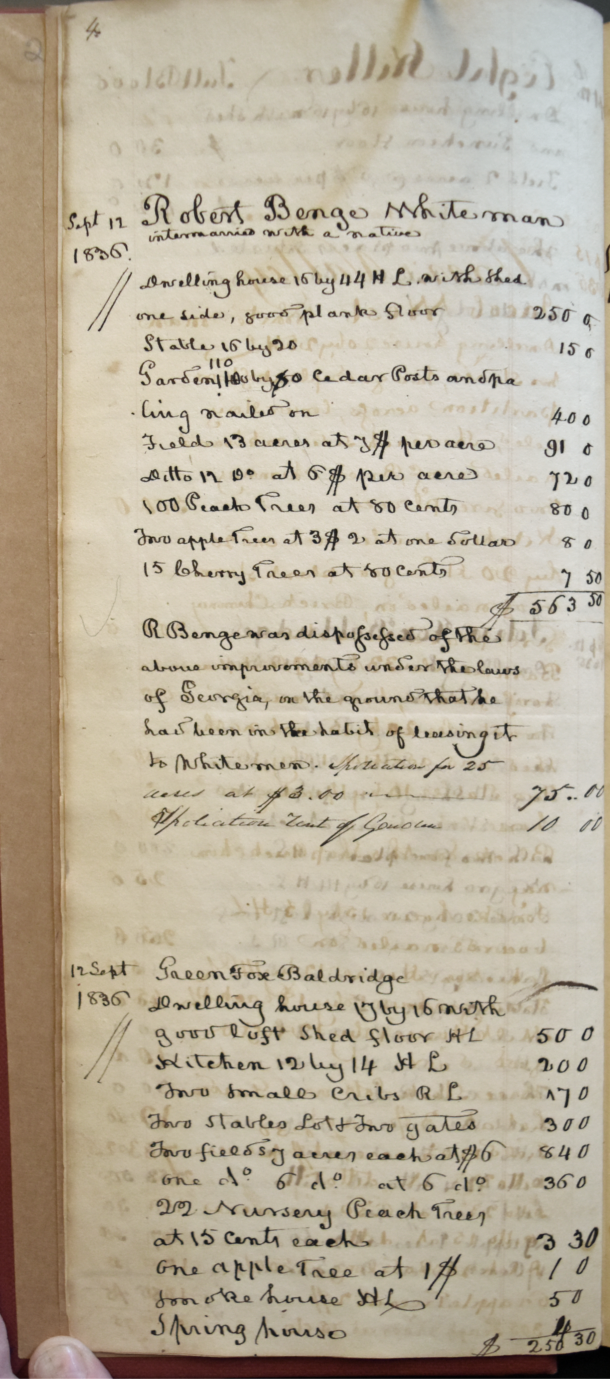 4
Sept 12 Robert Benge White man
1836. intermarried with a native
Dwelling house 16 by 44 H L. with Shed
one side, good plank floor 250 0
Stable 16 by 20 15 0
Garden 110 by 80 Cedar Posts and pa
ling nailed on 40 0
Field 13 acres at 7 $ per acre 91 0
Ditto 12 Do at 6 $ per acre 72 0
100 Peach Trees at 80 Cents 80 0
Two apple Trees at 3 $ 2 at one dollar 8 0
15 Cherry Trees at 50 Cents 7 50
$ 563 50
R Benge was dispossessed of the
above improvements under the laws
of Georgia, on the ground that he
had been in the habit of leasing it
to White men. Spoliation for 25
acres at $3.00 75..00
Spoliation Rent of Garden 10 00
12 Sept Green Fox Baldridge
1836 Dwelling house 17 by 16 with
good loft Shed floor HL 50 0
Kitchen 12 by 14 H L 20 0
Two Small Cribs R L 17 0
Two Stables Lot & Two gates 30 0
Two fields 7 acres each at $6 84 0
one do 6 do at 6 do 36 0
22 Nursery Peach Trees
at 15 Cents each 3 30
one apple Tree at 1 $ 1 0
Smoke house HL 5 0
Spring house 4
$ 250 30